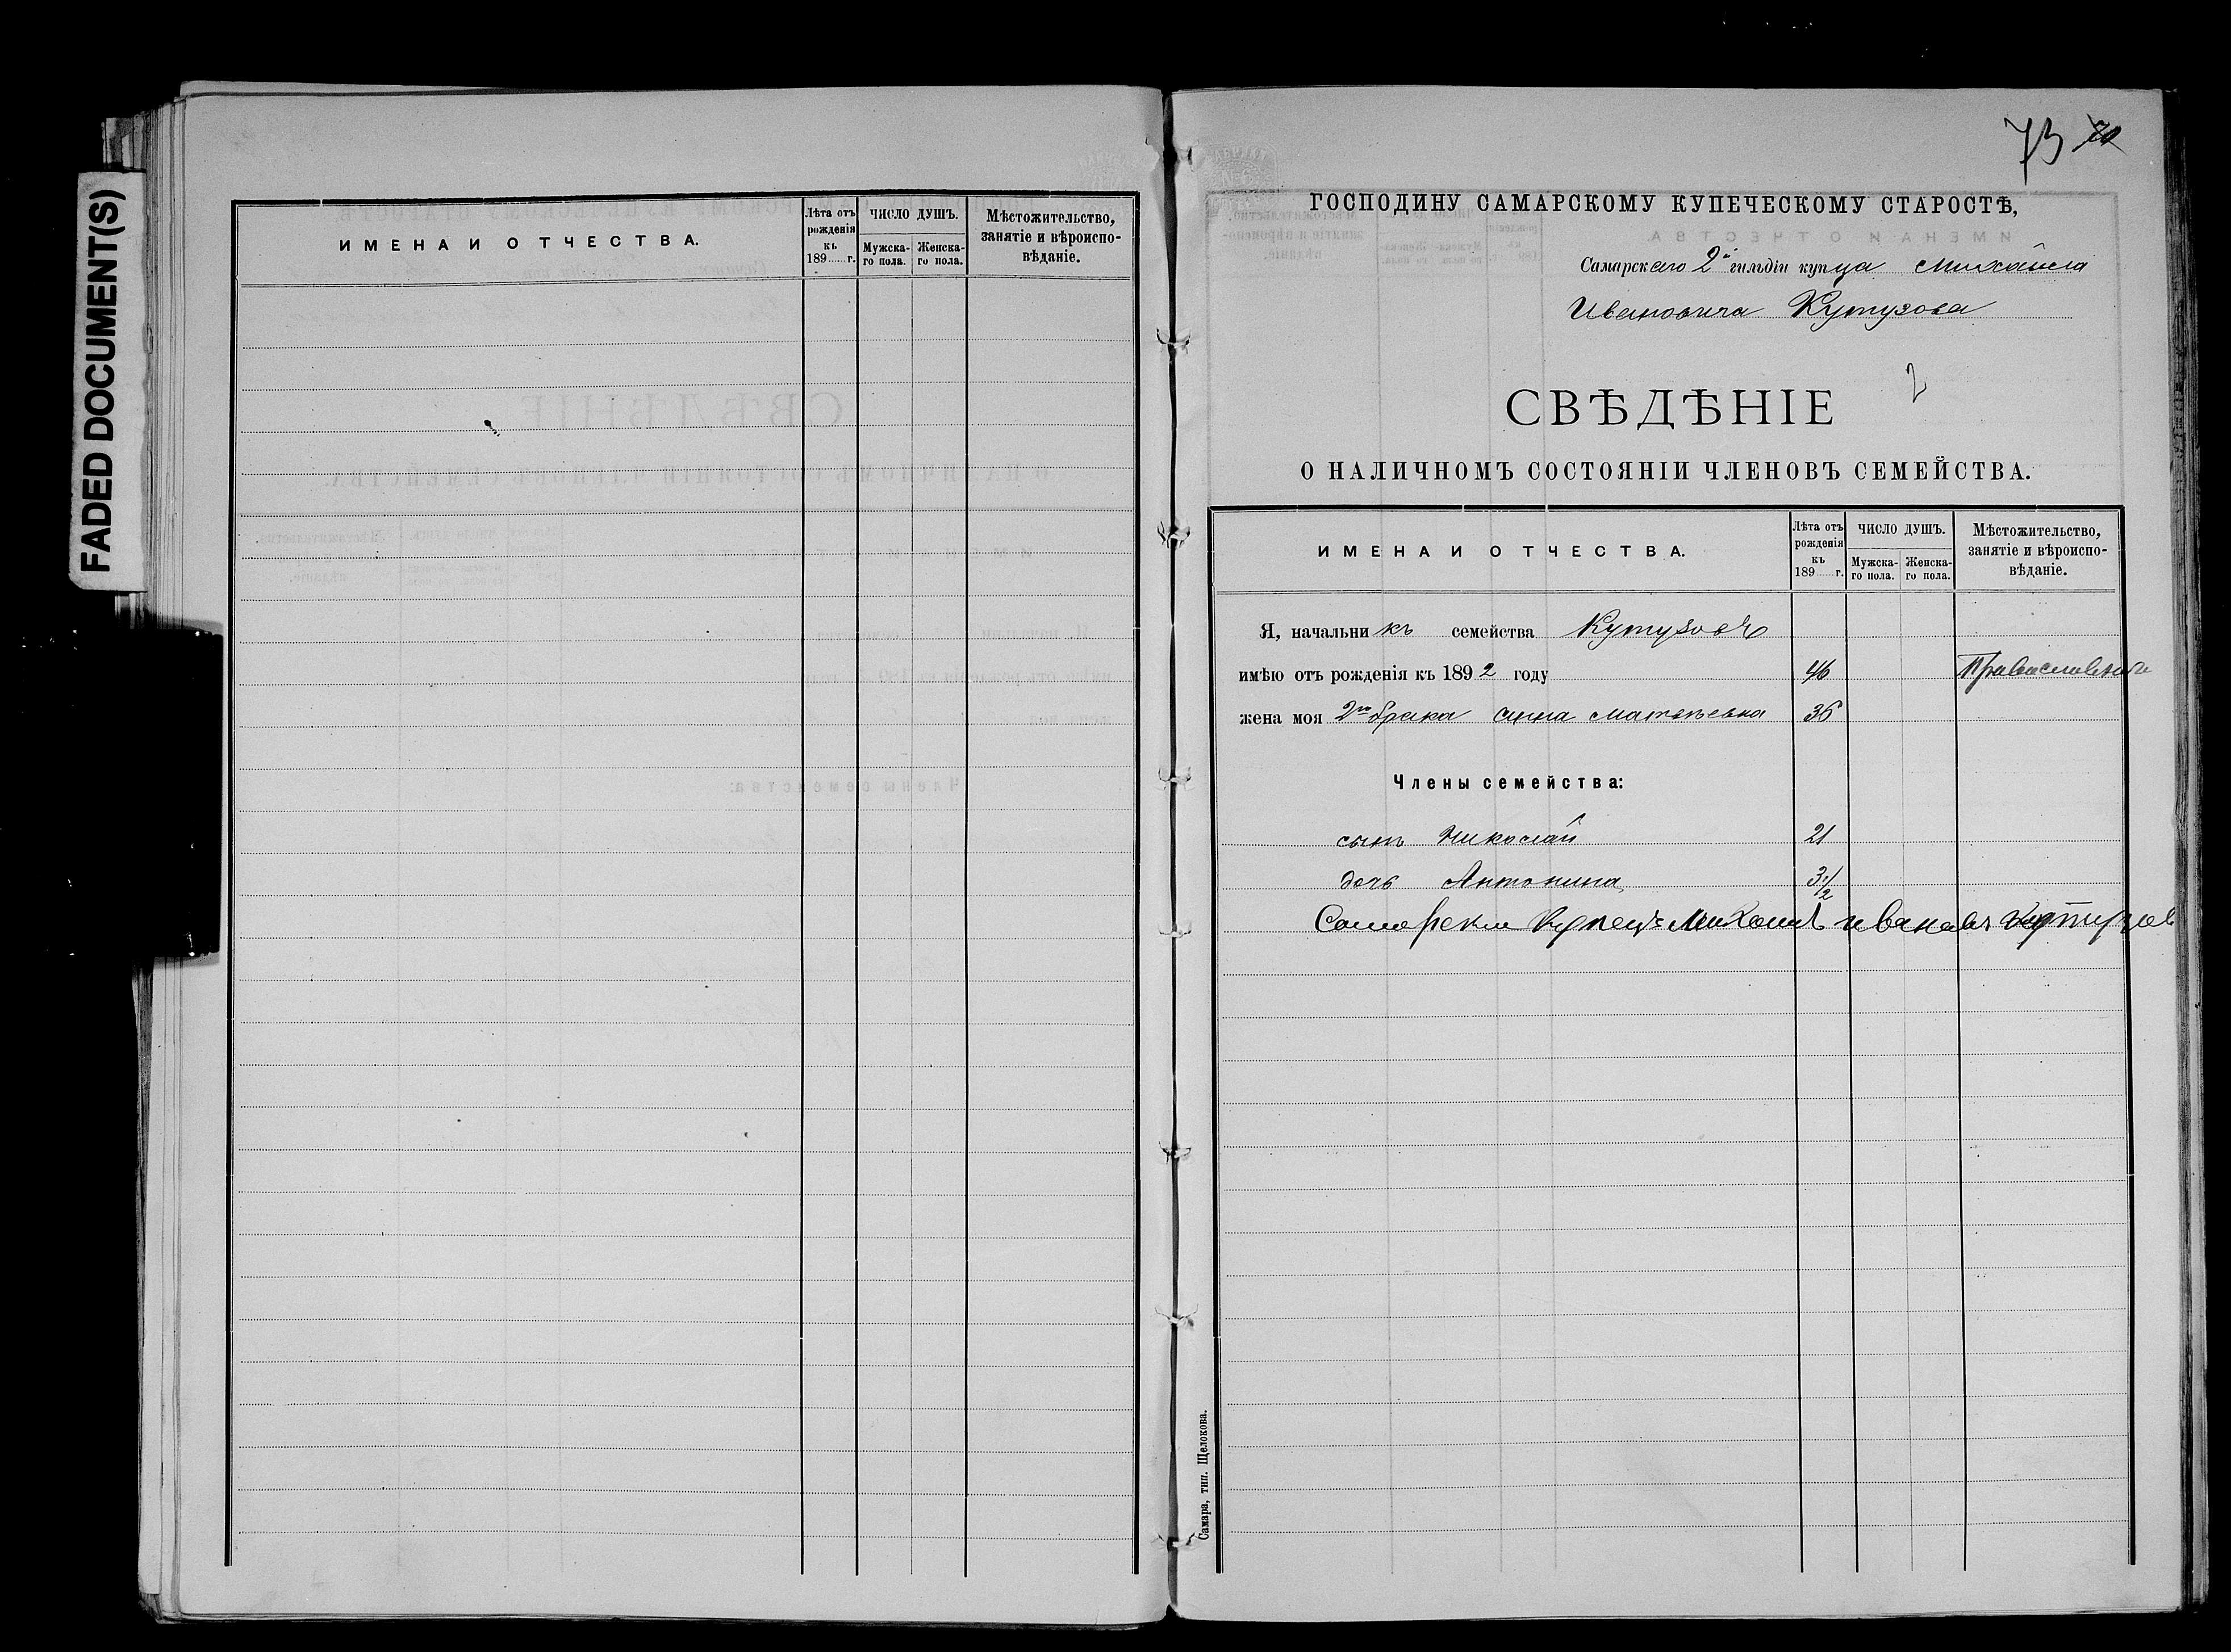 FADED DOCUMENT(S)
ИМЕНА И ОТЧЕСТВА.
Лѣта отъ рожденія къ 189 г.
ЧИСЛО ДУШЪ.
Мужска-го пола.
Женска-го пола.
Мѣстожительство, занятіе и вѣроиспо-вѣданіе.
73
ГОСПОДИНУ САМАРСКОМУ КУПЕЧЕСКОМУ СТАРОСТѢ,
Самарскаго 2й гильдіи купца Михаила
Ивановича Кутузова
2
СВѢДѢНІЕ
О НАЛИЧНОМЪ СОСТОЯНІИ ЧЛЕНОВЪ СЕМЕЙСТВА.
ИМЕНА И ОТЧЕСТВА.
Лѣта отъ рожденія къ 189 г.
ЧИСЛО ДУШЪ.
Мужска-го пола.
Женска-го пола.
Мѣстожительство, занятіе и вѣроиспо-вѣданіе.
Я, начальникъ семейства Кутузовъ
имѣю отъ рожденія къ 1892 году 46
жена моя 2го брака Анна Матвѣевна 36
Члены семейства:
сынъ Николай 21
дочь Антонина 3 1/2
Самарски Купецъ Михаилъ Кутузов
Самара, тип. Щелокова.